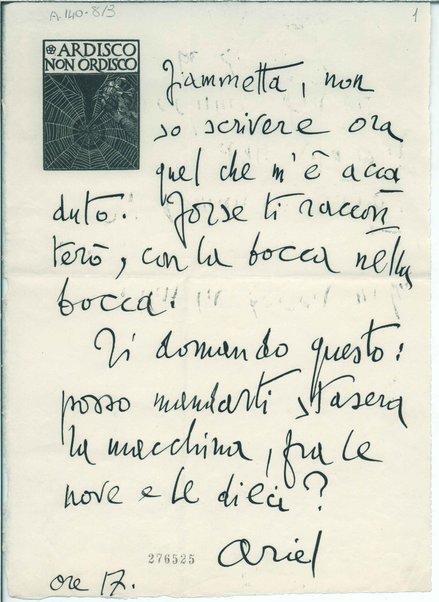 A.140-8/3
1
ARDISCO
NON ORDISCO
Fiammetta, non
so scrivere ora
quel che m'è acca
duto. Forse ti raccon
terò, con la bocca nella
bocca.
Ti domando questo:
posso mandarti stasera
la macchina, fra le
nove e le dieci?
276525
Ariel
ore 17.